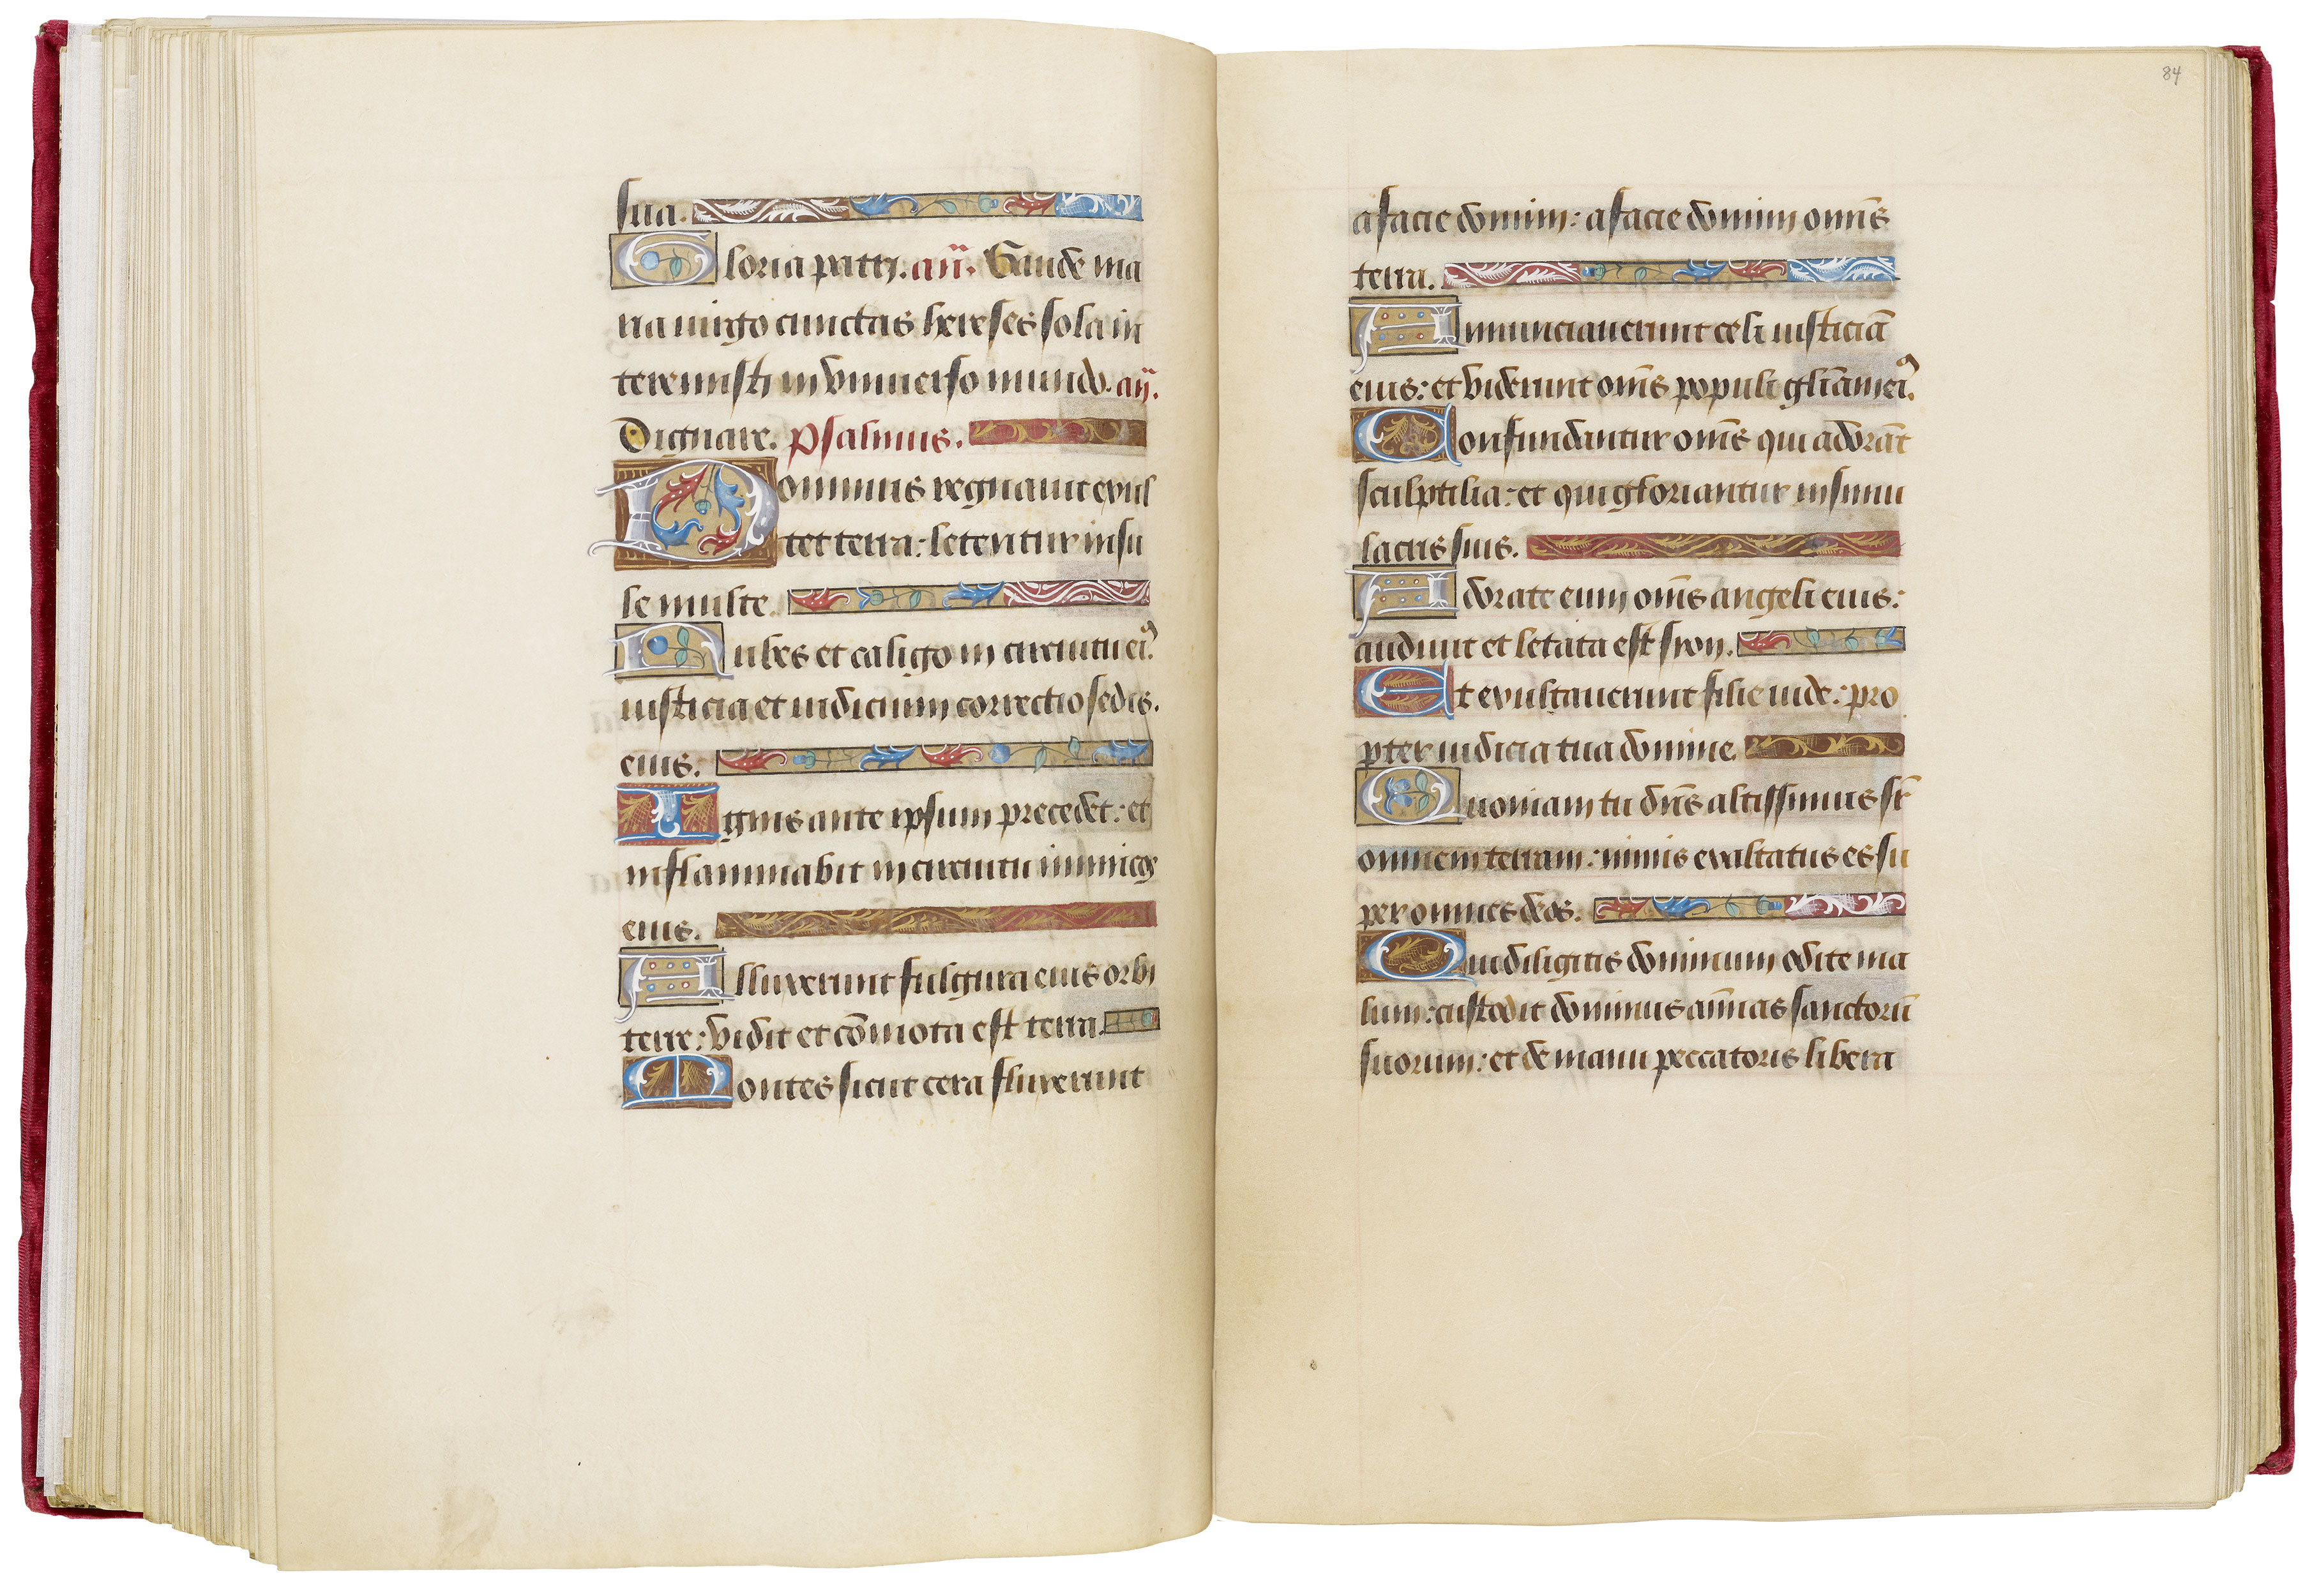 sua.
Gloria patri. añ. Gaude ma
ria uirgo cunctas hereses sola in
teremisti in vniuerso mundo. añ.
Dignare. Psalmus.
Dominus regnauit exul
tet terra: letentur insu
le multe.
Nubes et caligo in circuitu ei⁹.
iusticia et iudicium correctio sedis.
eius.
Ignis ante ipsum precedet: et
inflammabit in circuitu inimicꝫ
eius.
Alluxerunt fulgura eius orbi
terre: vidit et cōmota est terra.
Montes sicut cera fluxerunt
84
a facie domini: a facie domini om̄s
terra.
Annunciauerunt celi iusticiā
eius: et viderunt om̄s populi gl̄iam ei⁹.
Confundantur om̄s qui adorāt
sculptilia: et qui gloriantur in simu
lacris suis.
Adorate eum om̄s angeli eius:
audiuit et letata est syon.
Et exultauerunt filie iude: pro
pter iudicia tua domine.
Quoniam tu dn̄s altissimus sr̄
omnem terram: nimis exaltatus es su
per omnes deos.
Qui diligitis dominum odite ma
lum: custodit dominus aīmas sanctorū
suorum: et de manu peccatoris libera